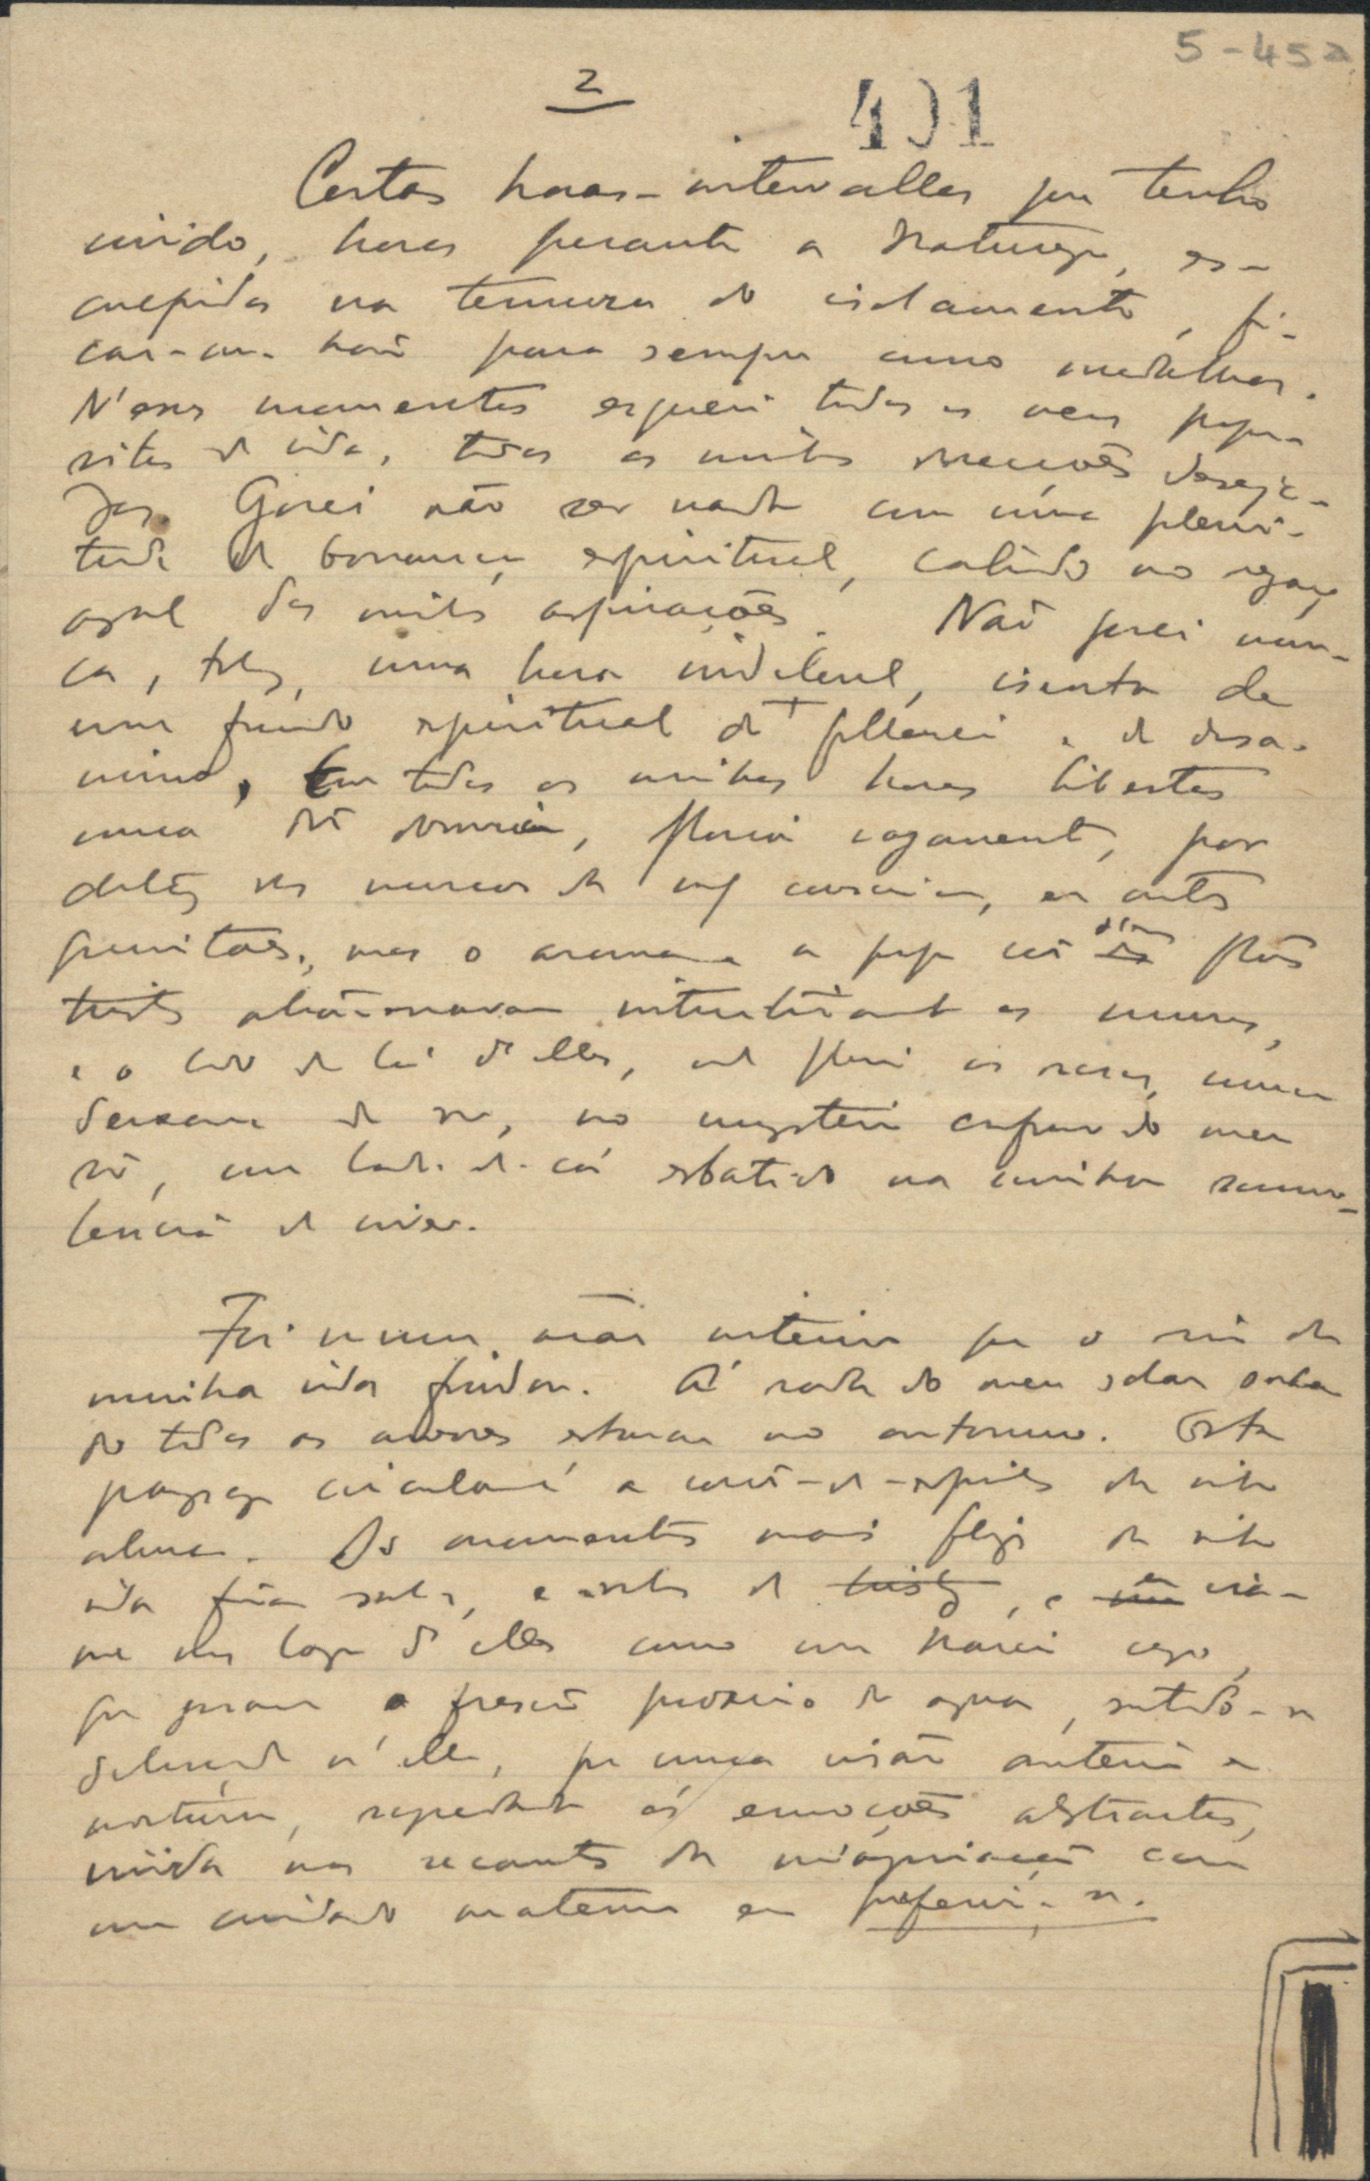 5-45a
2
401
Certas horas-intervallos que tenho
vivido, horas perante a Natureza, es-
culpidas na ternura do isolamento, fi-
car-me-hão para sempre como medalhas.
N'esses momentos esqueci todos os meus propo-
sitos de vida, todas as minhas direcções deseja-
das. Gosei não ser nada com uma pleni-
tude de bonança espiritual, cahindo no regaço
azul das minhas aspirações. Não gosei nun-
ca, talvez, uma hora indelevel, isenta de
um fundo espiritual de fallencia e de desa-
nimo. Em todas as minhas horas libertas
uma dôr dormia, floria vagamente, por
detraz dos muros da minha consciencia, em outros
quintaes; mas o aroma e a propria côr d'essas flôres
tristes atravessavam intuitivamente os muros,
e o lado de lá d'elles, onde floriam as rosas, nunca
deixaram de ser, no mysterio confuso do meu
ser, um lado de cá esbatido na minha somno-
lencia de viver.
Foi num mar interior que o rio da
minha vida findou. Á roda do meu solar sonha-
do todas as arvores estavam no outomno. Esta
paysagem circular é a corôa-de-espinhos da minha
alma. Os momentos mais felizes da minha
vida foram sonhos, e sonhos de tristeza, e eu via-
me nos lagos d'elles como um Narciso cego,
que gosou a frescura proximo da agua, sentindo-se
debruçado n'ella, por uma visão anterior e
nocturna, segredada ás emoções abstractas,
vivida nos recantos da imaginação com
um cuidado materno em preferir-se.